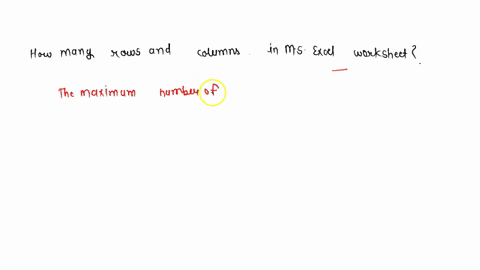 How many rows and columns in Ms. Excel worksheet?
The maximum number of